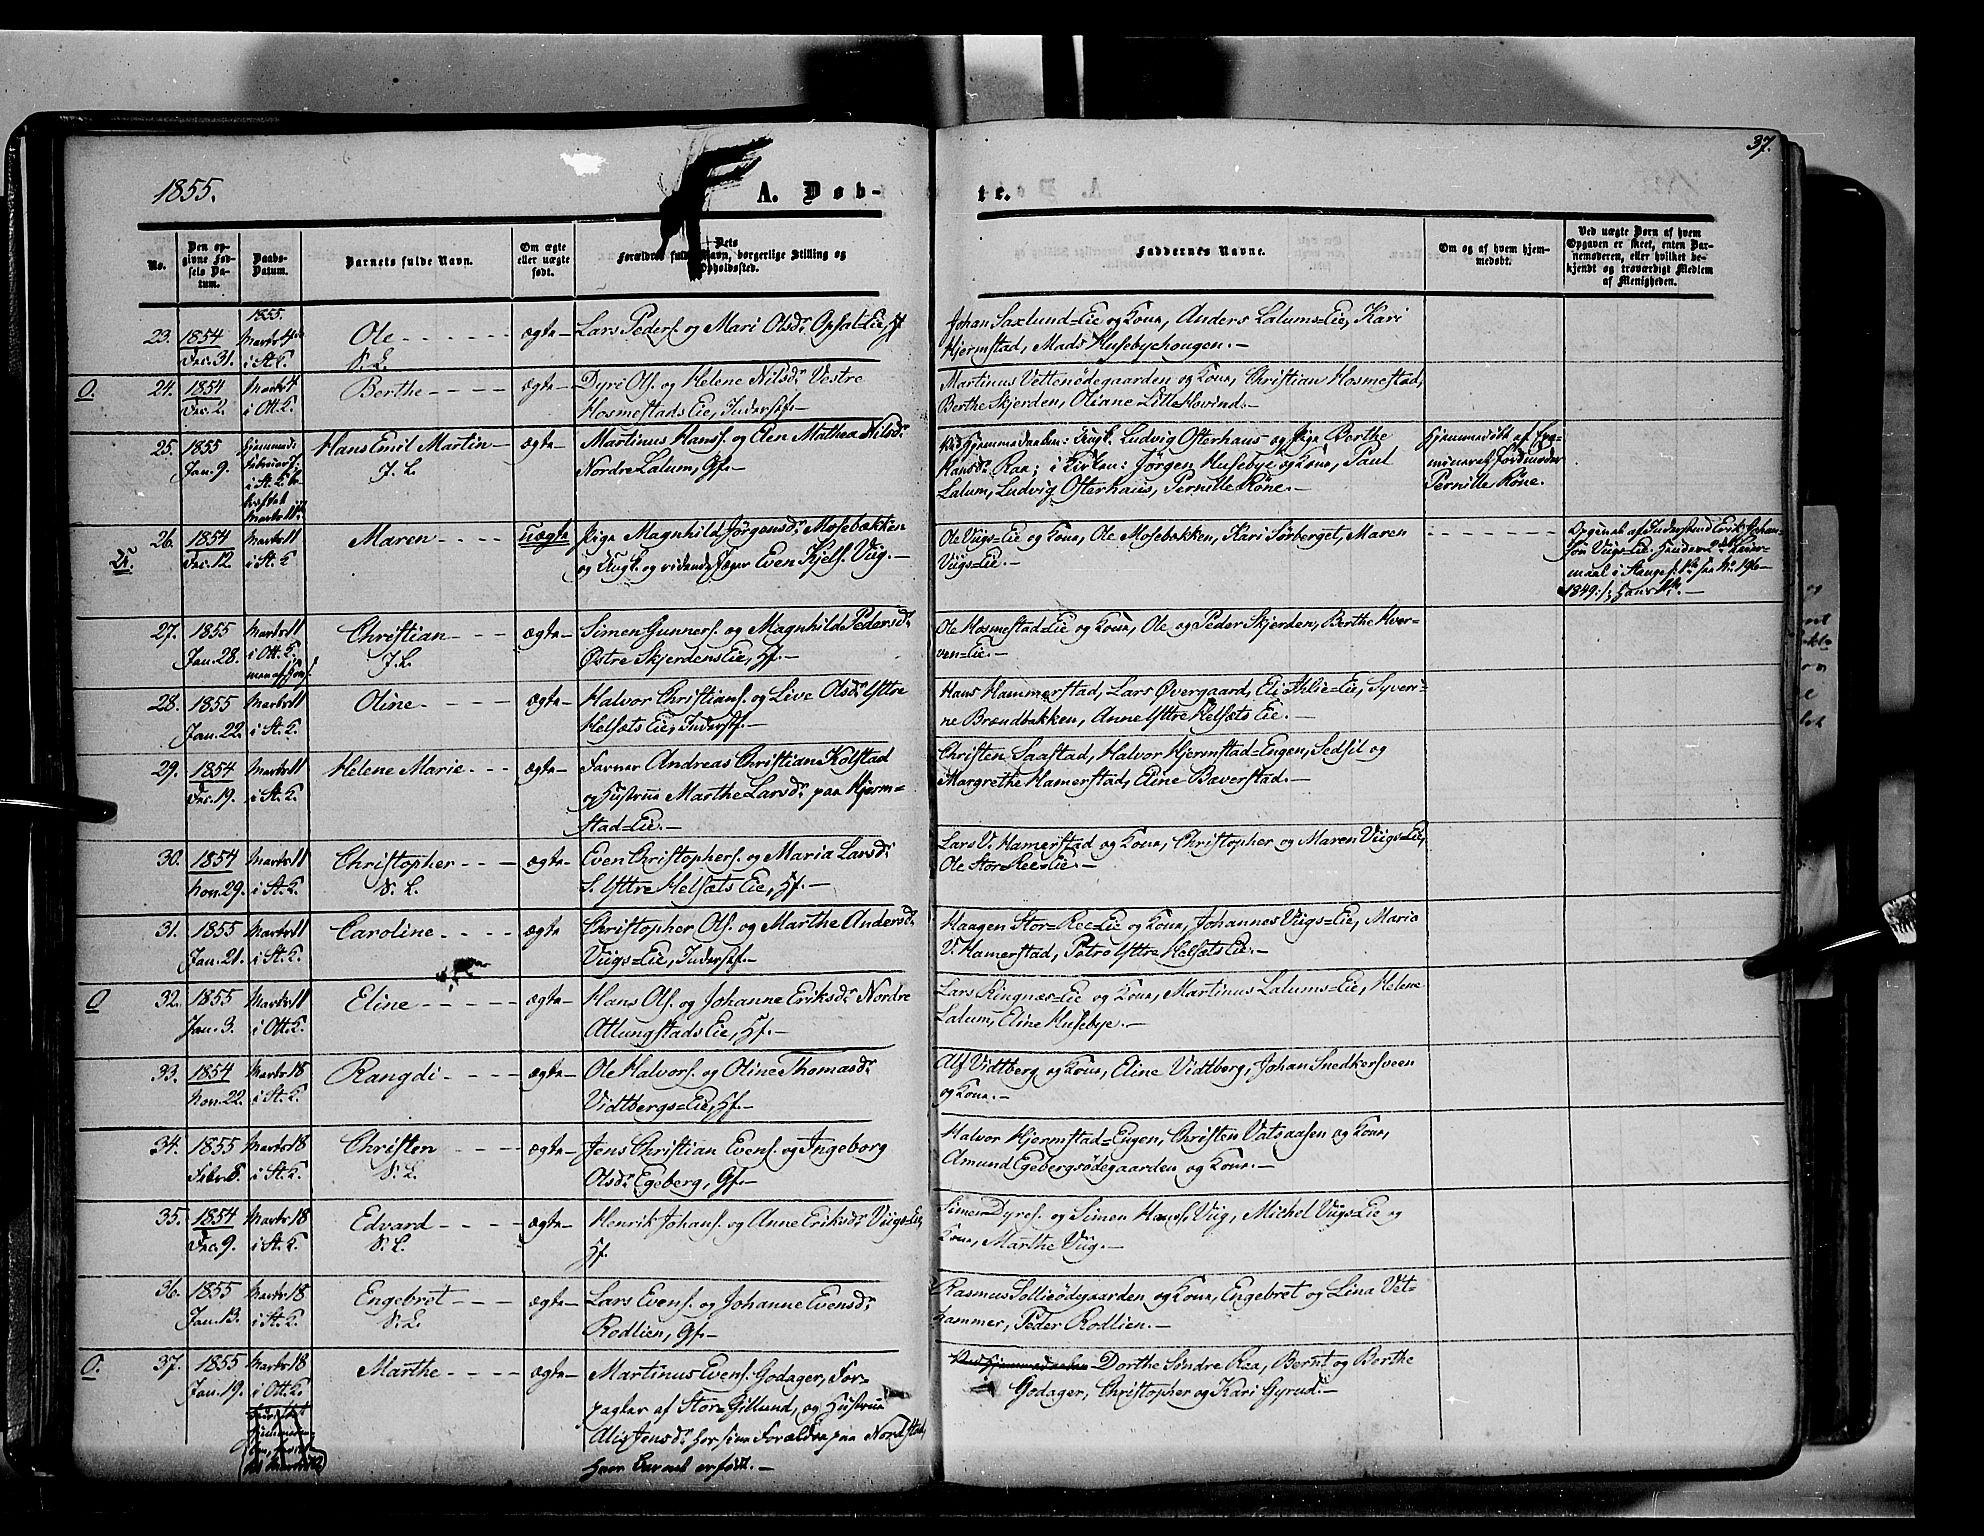 37.
1855.
A. Døb-
te.
No.
Den op-
givne Fød-
sels Da-
tum.
Daabs-
Datum.
Barnets fulde Navn.
Om ægte
eller uægte
født.
Dets
Forældres fulde Navn, borgerlige Stilling og
Opholdssted.
Faddernes Navne.
Om og af hvem hjem-
medøbt.
Ved uægte Børn af hvem
Opgaven er skeet, enten Bar-
nemoderen, eller hvilket be-
kjendt og troværdigt Medlem
af Menigheden.
23. 1854 Dec. 31.
1855. Marts 4 i St. K.
Ole
S. L.
ægte
Lars Peders. og Mari Olsdr. Opsal-Eie, Hf
Johan Saxlund-Eie og Kone, Anders Lalums-Eie, Kari
Hjermstad, Mads Husebyehougen.
O. 24. 1854 Dec. 2.
Marts 4 i Ott. K.
Berthe
ægte
Dyre Ols. og Helene Nilsdr. Vestre
Hosmestads Eie, Inderstf.
Martinus Vettenødegaarden og Kone, Christian Hosmestad,
Berthe Skjerden, Oliane Lille Hovind.
25. 1855 Jan. 9.
Hjemmed.
Februar
i St. K.
Marts 11
Hans Emil Martin
J. L.
ægte
Martinus Hans. og Elen Mathea Nilsdr.
Nordre Lalum, Gf.
Ved Hjemmedaaben: Ungk. Ludvig Osterhaus og Pige Berthe
Hansdr. Raa; i Kirken: Jørgen Husebye og Kone, Paul
Lalum, Ludvig Osterhaus, Pernille Røne.
Hjemmedøbt af Exa-
mineret Jordmoder
Pernille Røne.
26. 1854 Dec. 12.
Marts 11 i St. K
Maren
Uægte
Pige Magnhild Jørgensdr. Mosebækken
og Ungk. og ridende Jæger Even Kjels. Viig.
Ole Viigs-Eie og Kone, Ole Mosebækken, Kari Sørberget, Maren
Viigs-Eie.
Opgivet af Inderstmd Erik Johan-
sen Viigs-Eie. Hendes 2det Leier-
maal i Stange
1849
27. 1855 Jan. 28.
Marts 11 i Ott. K.
Christian
J. L.
ægte
Simen Gunners. og Magnhild Pedersdr.
Østre Skjerdens Eie, Hf.
Ole Hosmestad-Eie og Kone, Ole og Peder Skjerden, Berthe Hver-
ven-Eie.
28. 1855 Jan. 22.
Marts 11 i St. K.
Oline
ægte
Halvor Christians. og Live Olsdr. Yttre
Helsæts Eie, Inderstf.
Hans Hammerstad, Lars Øvergaard, Eli Ahlie-Eie, Syveri-
ne Brændbakken, Anne Yttre Helsæts Eie.
29. 1854 Dec. 19.
Marts 11 i St. K.
Helene Marie
ægte
Farver Andreas Christian Kolstad
og Hustrue Marthe Larsdr. paa Hjerm-
stad-Eie.
Christen Saastad, Halvor Hjermstad-Engen, Sedsil og
Margrethe Hamerstad, Eline Baverstad.
30. 1854 Nov. 29.
Marts 11 i St. K.
Christopher
S. L.
ægte
Even Christophers. og Maria Larsdr.
S. Yttre Helsæts Eie, Hf.
Lars V. Hamerstad og Kone, Christopher og Maren Viigs-Eie,
Ole Stor-Ree-Eie.
31. 1855 Jan. 21.
Marts 11 i St. K.
Caroline
ægte
Christopher Ols. og Marthe Andersdr.
Viigs-Eie, Inderstf.
Haagen Stor-Ree-Eie og Kone, Johannes Viigs-Eie, Maria
V. Hamerstad, Petro Yttre Helsæts Eie.
O 32. 1855 Jan. 3.
Marts 11 i Ott. K.
Eline
ægte
Hans Ols. og Johanne Eriksdr. Nordre
Atlungstads Eie, Hf.
Lars Ringnæs-Eie og Kone, Martinus Lalums-Eie, Helene
Lalum, Eline Husebye.
33. 1854 Nov. 22.
Marts 18 i St. K.
Rangdi
ægte
Ole Halvors. og Oline Thomasdr.
Vidtbergs-Eie, Hf.
Alf Vidtberg og Kone, Eline Vidtberg, Johan Snedkersveen
og Kone.
34. 1855 Febr. 8.
Marts 18 i St. K.
Christen
S. L.
ægte
Jens Christian Evens. og Ingeborg
Olsdr. Egeberg, Gf.
Halvor Hjermstad-Engen, Christen Vatsaasen og Kone,
Amund Egebergsødegaarden og Kone.
35. 1854 Dec. 9.
Marts 18 i St. K.
Edvard
S. L.
ægte
Henrik Johans. og Anne Eriksdr. Viigs-Eie,
Hf.
Simen Dyres. og Simen Hans. Viig, Michel Viigs-Eie og
Kone, Marthe Viig.
36. 1855 Jan. 13.
Marts 18 i St. K.
Engebret
S. L.
ægte
Lars Evens. og Johanne Evensdr.
Rodlien, Gf.
Rasmus Sollieødegaarden og Kone, Engebret og Lina Vet-
hammer, Peder Rodlien.
O. 37. 1855 Jan. 19.
Marts 18 i Ott. K.
Marthe
ægte
Martinus Evens. Godager, For-
pagter af Stor-Gillund, og Hustrue
Alis Jensdr. hos sine Forældre paa Nordstad,
hvor Barnet er født.
Ved Hjemmedaaben Dorthe Søndre Raa, Bernt og Berthe
Godager, Christopher og Kari Gyrud.